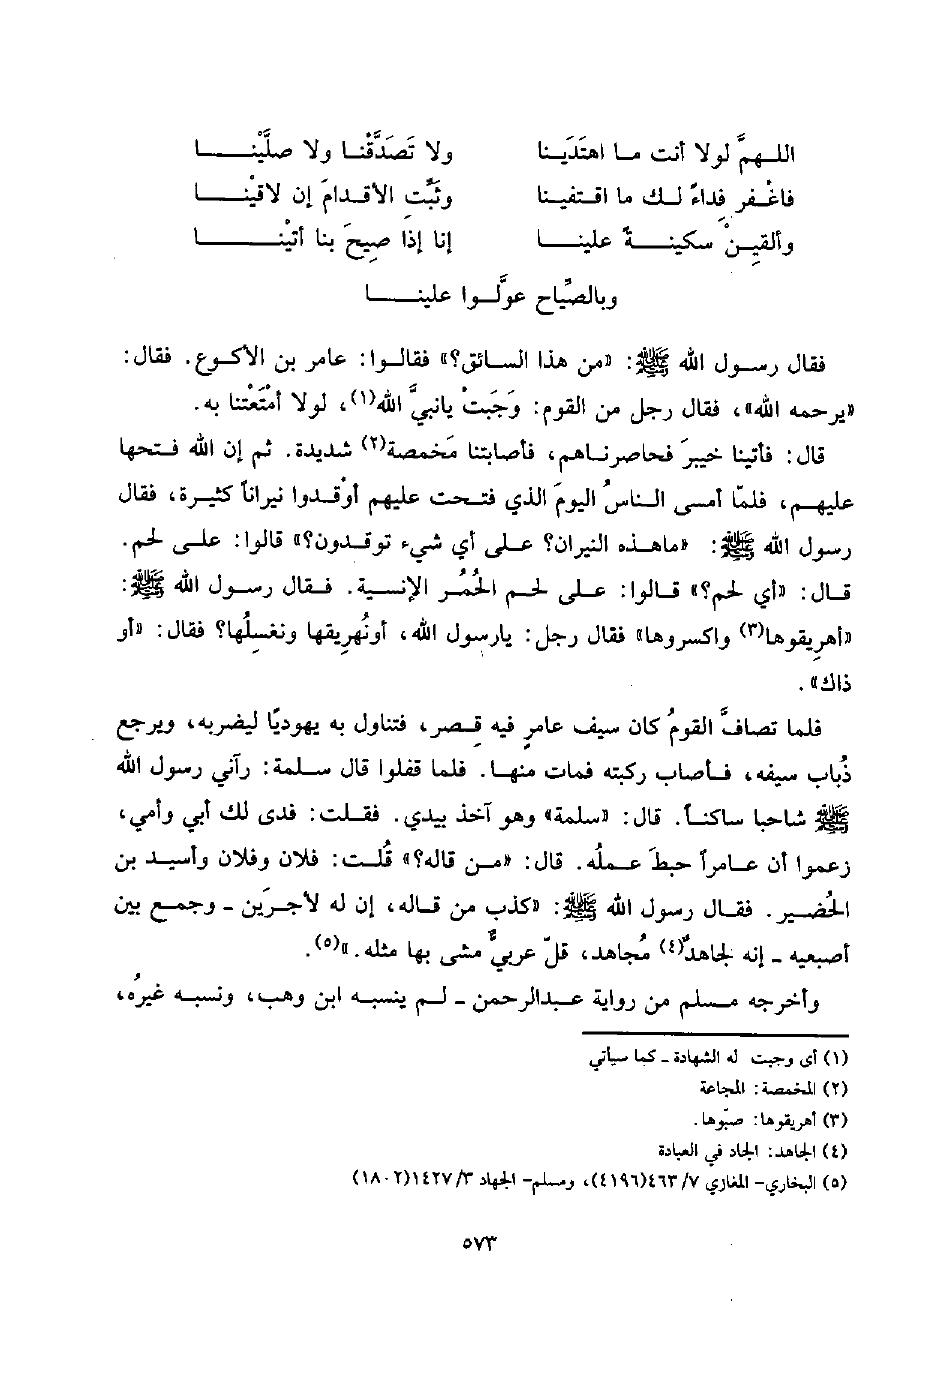 اللهمَّ لولا أنت ما اهتَدَينا ولا تَصَدَّقْنا ولا صلَّيْنا
فاغْفِر فِداءً لك ما اقتفينا وثَبِّت الأقدامَ إن لاقَيْنا
وألقِيَنْ سكينةً علينا إنا إذا صِيحَ بنا أتَيْنا
وبالصِّياح عوَّلوا علينا
فقال رسول الله ﷺ: «من هذا السائق؟» فقالوا: عامر بن الأكوع. فقال:
«يرحمه الله»، فقال رجل من القوم: وَجَبَتْ يانبيَّ الله(١)، لولا أمْتَعْتنا به.
قال: فأتينا خيبرَ فحاصرناهم، فأصابتنا مَخمصة(٢) شديدة. ثم إن الله فتحها
عليهم، فلمّا أمسى الناسُ اليومَ الذي فتحت عليهم أوْقدوا نيراناً كثيرة، فقال
رسول الله ﷺ: «ماهذه النيران؟ على أي شيء توقدون؟» قالوا: على لحم.
قال: «أي لحم؟» قالوا: على لحم الحُمُر الإنسية. فقال رسول الله ﷺ:
«أهرِيقوها(٣) واكسروها» فقال رجل: يارسول الله، أونُهرِيقها ونغسِلُها؟ فقال: «أو
ذاك».
فلما تصافَّ القومُ كان سيف عامرٍ فيه قِصر، فتناول به يهوديًا ليضربه، ويرجع
ذُباب سيفه، فأصاب ركبته فمات منها. فلما قفلوا قال سلمة: رآني رسول الله
ﷺ شاحبا ساكتاً. قال: «سلمة» وهو آخذ بيدي. فقلت: فدى لك أبي وأمي،
زعموا أن عامراً حبطَ عملُه. قال: «من قاله؟» قُلت: فلان وفلان وأسيد بن
الحُضير. فقال رسول الله ﷺ: «كذب من قاله، إن له لأجرَين ـ وجمع بين
أصبعيه ـ إنه لجاهدٌ(٤) مُجاهد، قلّ عربيٌّ مشى بها مثله.»(٥).
وأخرجه مسلم من رواية عبدالرحمن ـ لم ينسبه ابن وهب، ونسبه غيرُه،
(١) أى وجبت له الشهادة ـ كما سيأتي
(٢) المخمصة: المجاعة
(٣) أهريقوها: صبّوها.
(٤) الجاهد: الجاد في العبادة
(٥) البخاري- المغازي ٧/ ٤٦٣(٤١٩٦)، ومسلم- الجهاد ٣/ ١٤٢٧(١٨٠٢)
٥٧٣